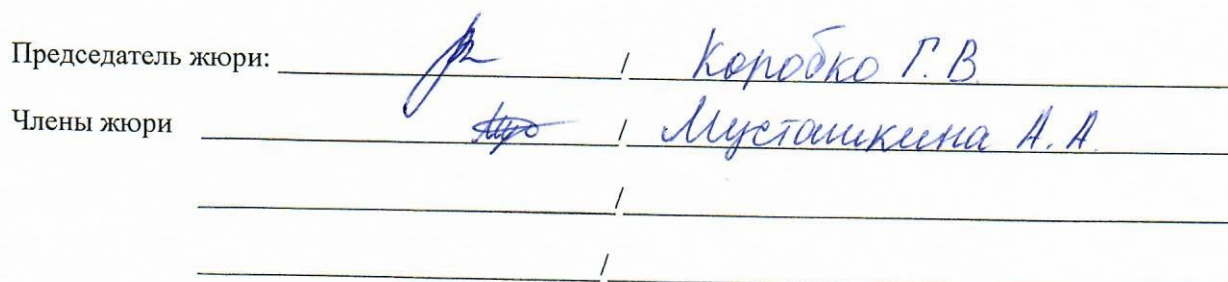 Председатель жюри: / Коробко Г. В.
Члены жюри / Мусташкина А. А.
/
/